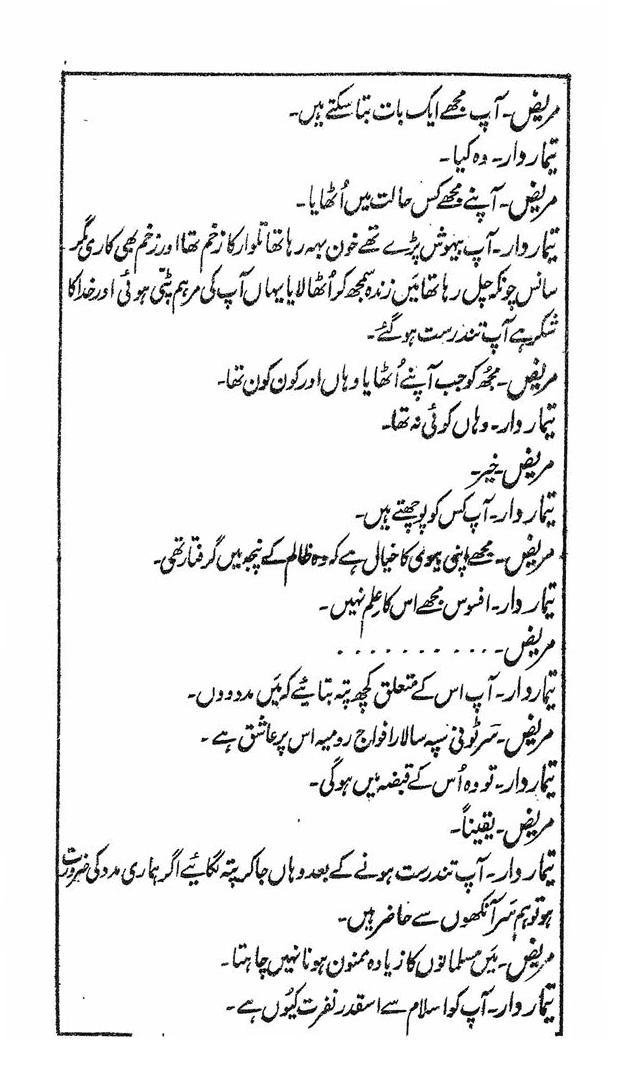 مریض۔ آپ مجھے ایک بات بتا سکتے ہیں۔
تیمار دار۔ وہ کیا۔
مریض۔ آپنے مجھے کس حالت میں اُٹھایا۔
تیمار دار۔ آپ بیہوش پڑے تھے خون بہہ رہا تھا تلوار کا زخم تھا اور زخم بھی کاری مگر
سانس چونکہ چل رہا تھا میں زندہ سمجھ کر اُٹھا لایا یہاں آپ کی مرہم پٹی ہوئی اور خدا کا
شکر ہے آپ تندرست ہو گئے۔
مریض۔ مجھ کو جب آپنے اُٹھایا وہاں اور کون کون تھا۔
تیمار دار۔ وہاں کوئی نہ تھا۔
مریض۔ خیر۔
تیمار دار۔ آپ کس کو پوچھتے ہیں۔
مریض۔ مجھے اپنی بیوی کا خیال ہے کہ وہ ظالم کے پنجہ میں گرفتار تھی۔
تیمار دار۔ افسوس مجھے اس کا علم نہیں۔
مریض۔ . . . . . . . . . . .
تیمار دار۔ آپ اس کے متعلق کچھ پتہ بتائیے کہ میں مدد دوں۔
مریض۔ سرٹونی سپہ سالار افواج رومیہ اس پر عاشق ہے۔
تیمار دار۔ تو وہ اُس کے قبضہ میں ہوگی۔
مریض۔ یقیناً۔
تیمار دار۔ آپ تندرست ہونے کے بعد وہاں جا کر پتہ لگائیے اگر ہماری مدد کی ضرورت
ہو تو ہم سر آنکھوں سے حاضر ہیں۔
مریض۔ میں مسلمانوں کا زیادہ ممنون ہونا نہیں چاہتا۔
تیمار دار۔ آپ کو اسلام سے اسقدر نفرت کیوں ہے۔